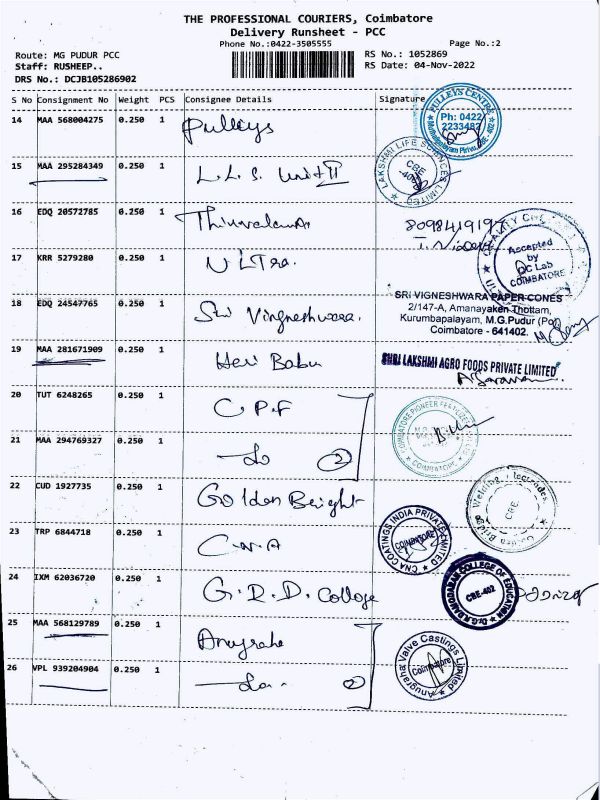 THE PROFESSIONAL COURIERS, Coimbatore
Delivery Runsheet - PCC
Phone No.:0422-3505555
Page No.:2
Route: MG PUDUR PCC
RS No.: 1052869
Staff: RUSHEEP..
RS Date: 04-Nov-2022
DRS No.: DCJB105286902
S No Consignment No Weight PCS Consignee Details Signature
14 MAA 568004275 0.250 1 Pulleys
PULLEYS CENTRE
Ph: 0422
2233482
15 MAA 295284349 0.250 1 L.L.S. Unit II
LAKSHMI LIFE SCIENCES LIMITED
CBE
16 EDQ 20572785 0.250 1
8098419197
17 KRR 5279280 0.250 1
Accepted
by
QC Lab
COIMBATORE
18 EDQ 24547765 0.250 1 Sri Vingneshwara.
SRI VIGNESHWARA PAPER CONES
2/147-A, Amanayaken Thottam,
Kurumbapalayam, M.G.Pudur (Po)
Coimbatore - 641402.
19 MAA 281671909 0.250 1 Heri Babu
SHRI LAKSHMI AGRO FOODS PRIVATE LIMITED
20 TUT 6248265 0.250 1 C.P.F
21 MAA 294769327 0.250 1 -do 2
COIMBATORE
22 CUD 1927735 0.250 1 Golden Bright
CBE
23 TRP 6844718 0.250 1 C.N.A
CNA COATINGS INDIA PRIVATE LIMITED
COIMBATORE
24 IXM 62036720 0.250 1 G.R.D. College
Dr.G.R.DAMODARAN COLLEGE OF EDUCATION
CBE-402
25 MAA 568129789 0.250 1 Anugraha
26 VPL 939204904 0.250 1 -do- 2
Anugraha Valve Castings Limited
Coimbatore